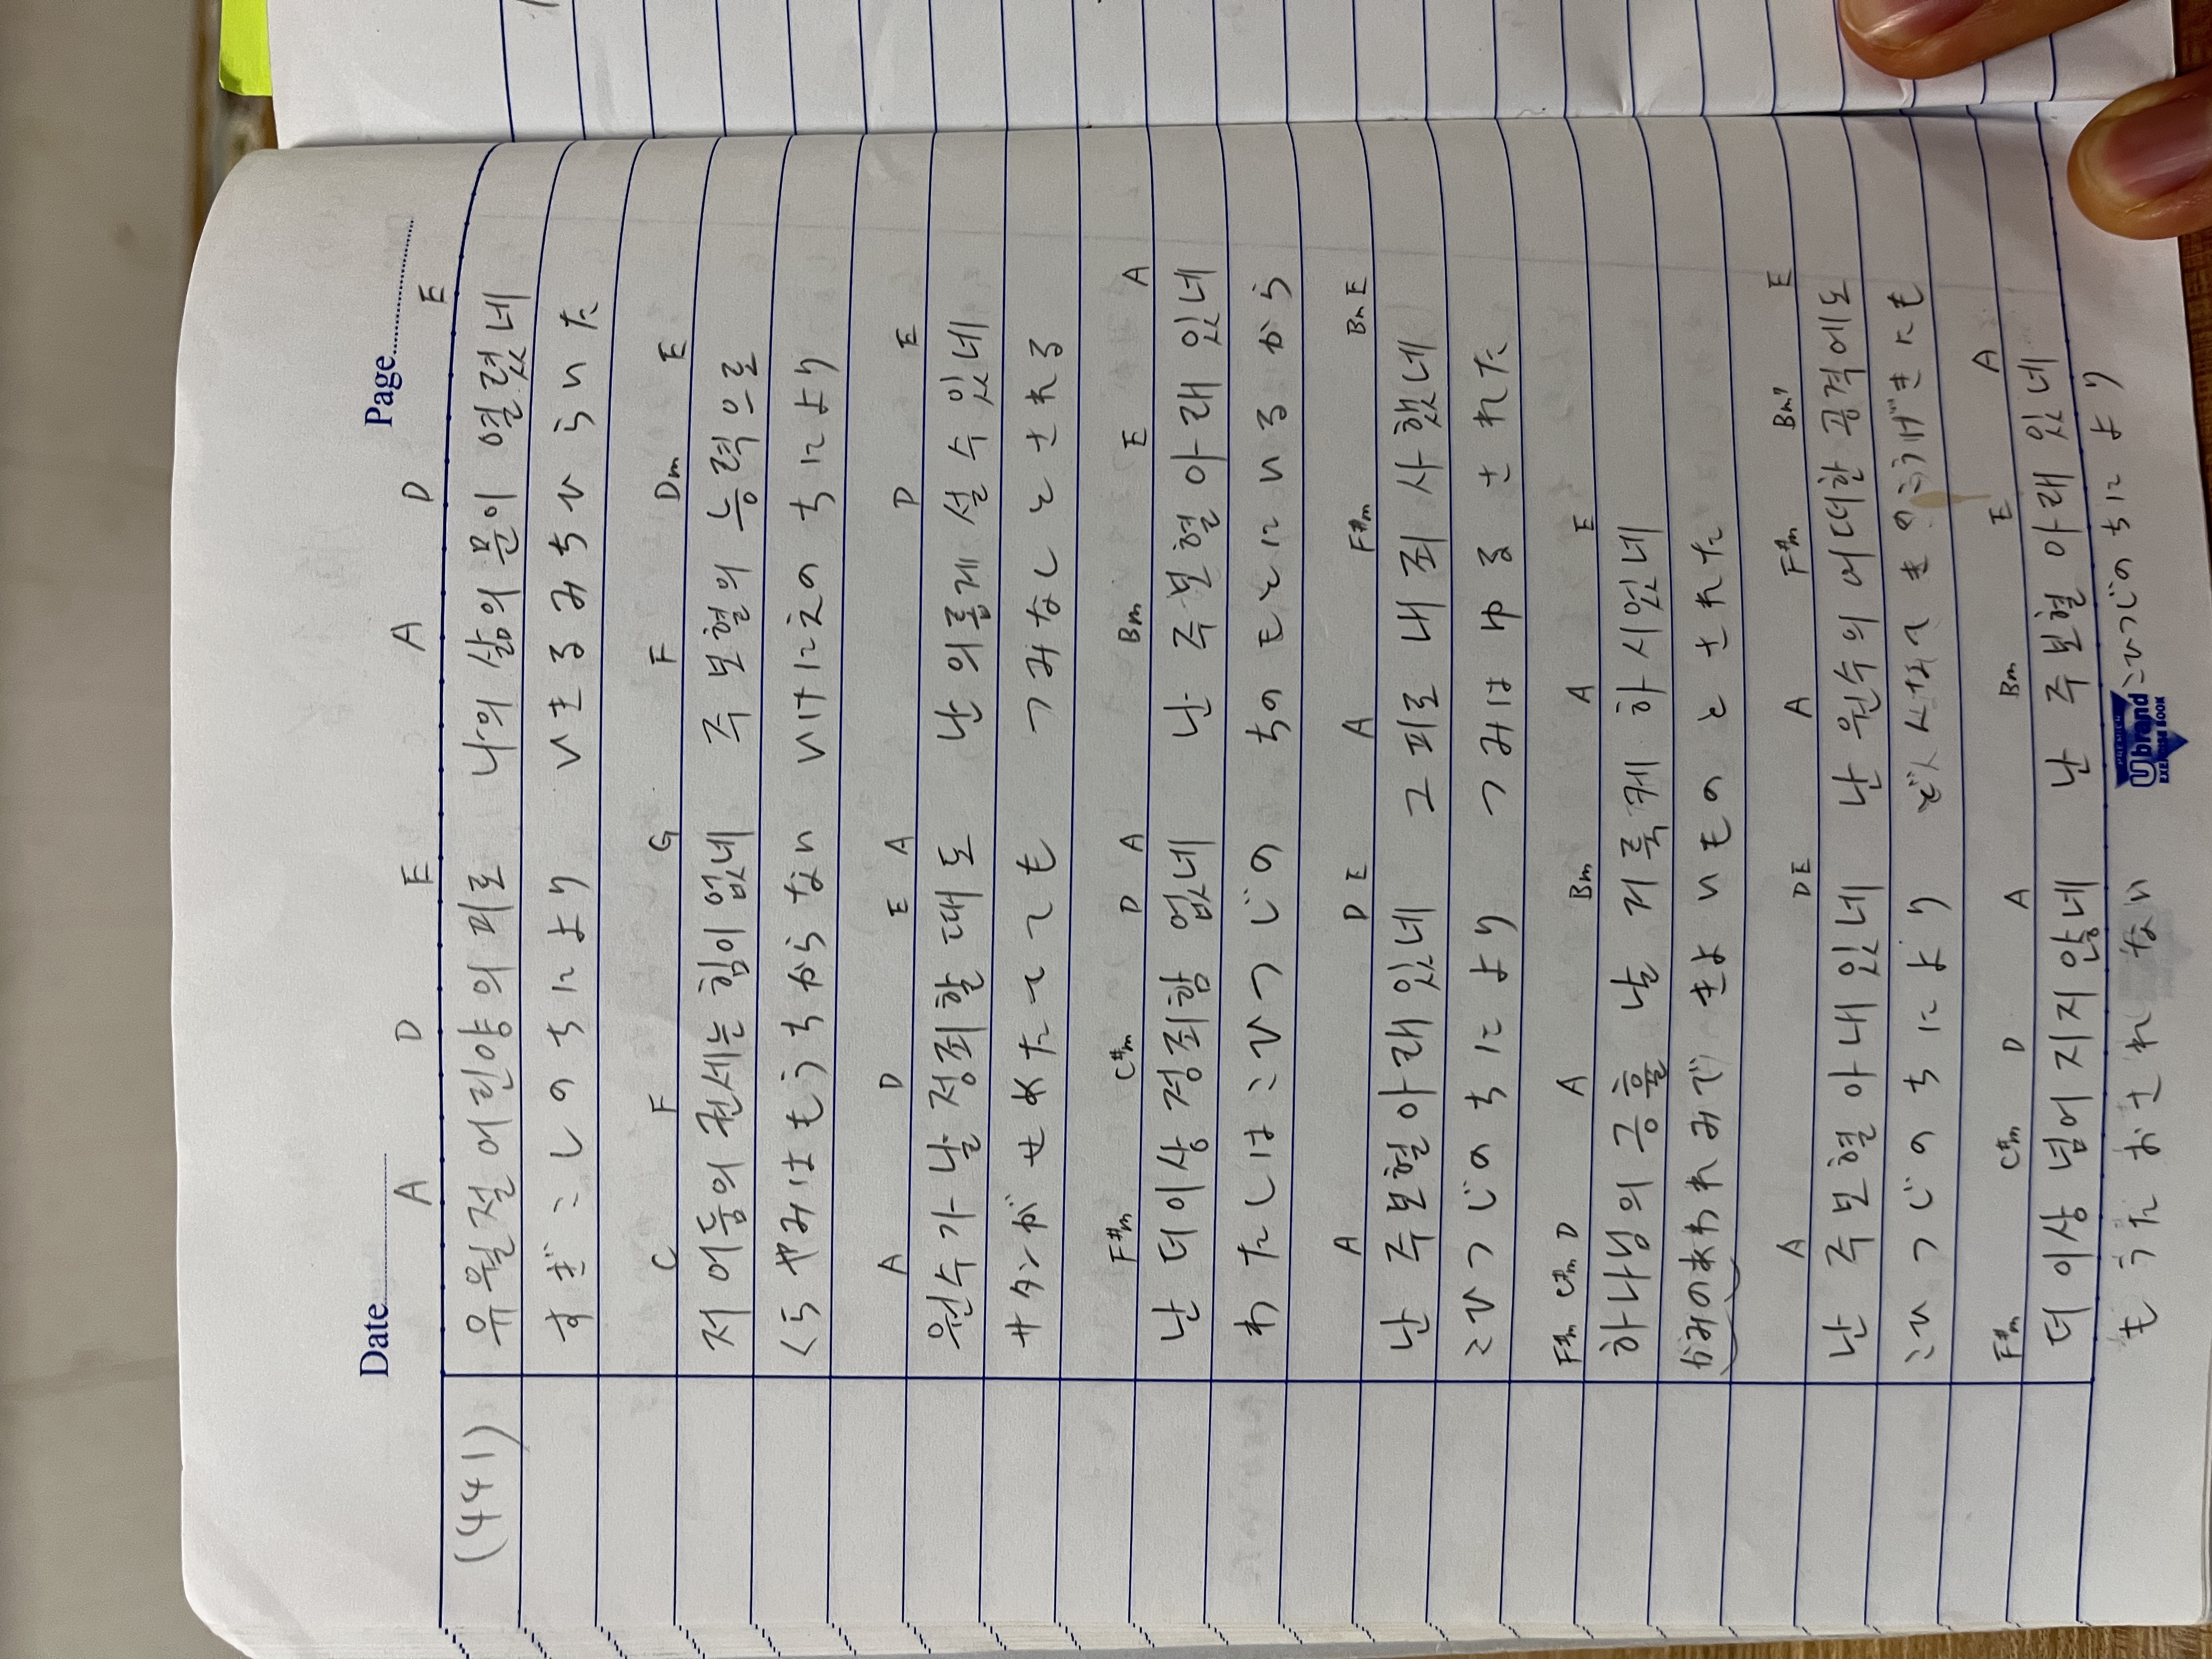 Date Page
A D E A D E
(441) 유월절 어린양의 피로 나의 삶의 문이 열렸네
すぎこしのちにより いきるみちひらいた
C F G F Dm E
저 어둠의 권세는 힘이 없네 주 보혈의 능력으로
くらやみはもうちからない いけにえのちにより
A D E A D E
원수가 날 정죄할 때도 난 의롭게 설 수 있네
サタンが せめたてても つみなしとされる
F#m C#m D A Bm E A
난 더이상 정죄함 없네 난 주보혈 아래 있네
わたしはこひつじの ちのもとにいるから
A D E A F#m Bm E
난 주보혈아래 있네 그 피로 내 죄 사했네
こひつじのちにより つみはゆるされた
F#m C#m D A Bm A E
하나님의 긍휼 날 거룩케 하시었네
かみのあわれみで きよいものとされた
A D E A F#m Bm7 E
난 주보혈 아내 있네 난 원수의 어떠한 공격에도
こひつじのちにより どんな てきのこうげきにも
F#m C#m D A Bm E A
더 이상 넘어지지 않네 난 주보혈 아래 있네
もうたおされない こひつじのちにより
Ubrand
EXERCISE BOOK